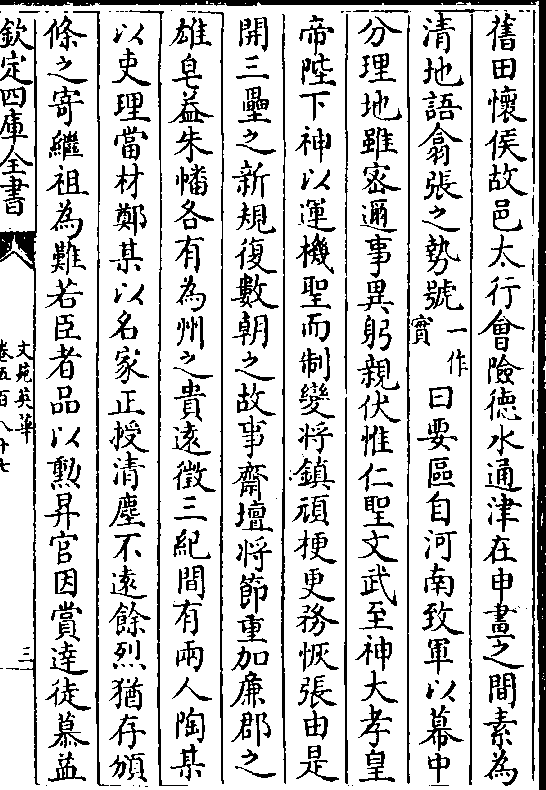 舊田懷侯故邑太行會險德水通津在申畫之間素為
清地語翕張之勢號一作實曰要區自河南致軍以幕中
分理地雖密邇事異躬親伏惟仁聖文武至神大孝皇
帝陛下神以運機聖而制變將鎮頑梗更務恢張由是
開三壘之新規復數朝之故事齋壇將節重加廉郡之
雄皁益朱幡各有為州之貴遠徵三紀間有兩人陶某
以吏理當材鄭某以名家正授清塵不遠餘烈猶存頒
條之寄繼祖為難若臣者品以勲昇官因賞達徒慕益
欽定四庫全書
文苑英華
卷五百八十七
三